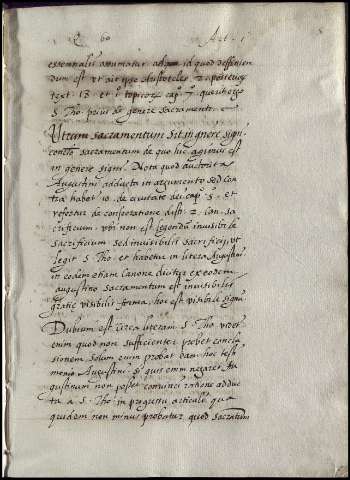 Q. 60 Art. 1
essentialis assumatur ad id quod diffinien
dum est ut ait ipse Aristoteles 2 posteriorum
text. 13 et 1 topicorum cap. querit ergo
S. Tho. prius de genere sacramenti.
Utrum sacramentum sit in genere signi
conclus. sacramentum de quo hic agimus est
in genere signi. Nota quod auctoritas
Augustini adducta in argumento sed con
tra habet. 10. de civitate dei cap. 5. et
refertur de consecratione dist. 2. can. sa
crificium. ubi non est legendum invisibile
sacrificium sed invisibilis sacrificii, ut
legit S. Tho. et habetur in litera Augustini
in eodem etiam Canone dicitur ex eodem
augustino sacramentum est invisibilis
gratie visibilis forma, hoc est visibile signum
Dubium est circa literam S. Tho. videtur
enim quod non sufficienter probet conclu
sionem, solum enim probat eam hoc testi
monio Augustini si quis enim negaret Au
gustinum non posset convinci ratione addu
cta a S. Tho. in progressu articuli, qua
quidem non minus probatur quod sacratum